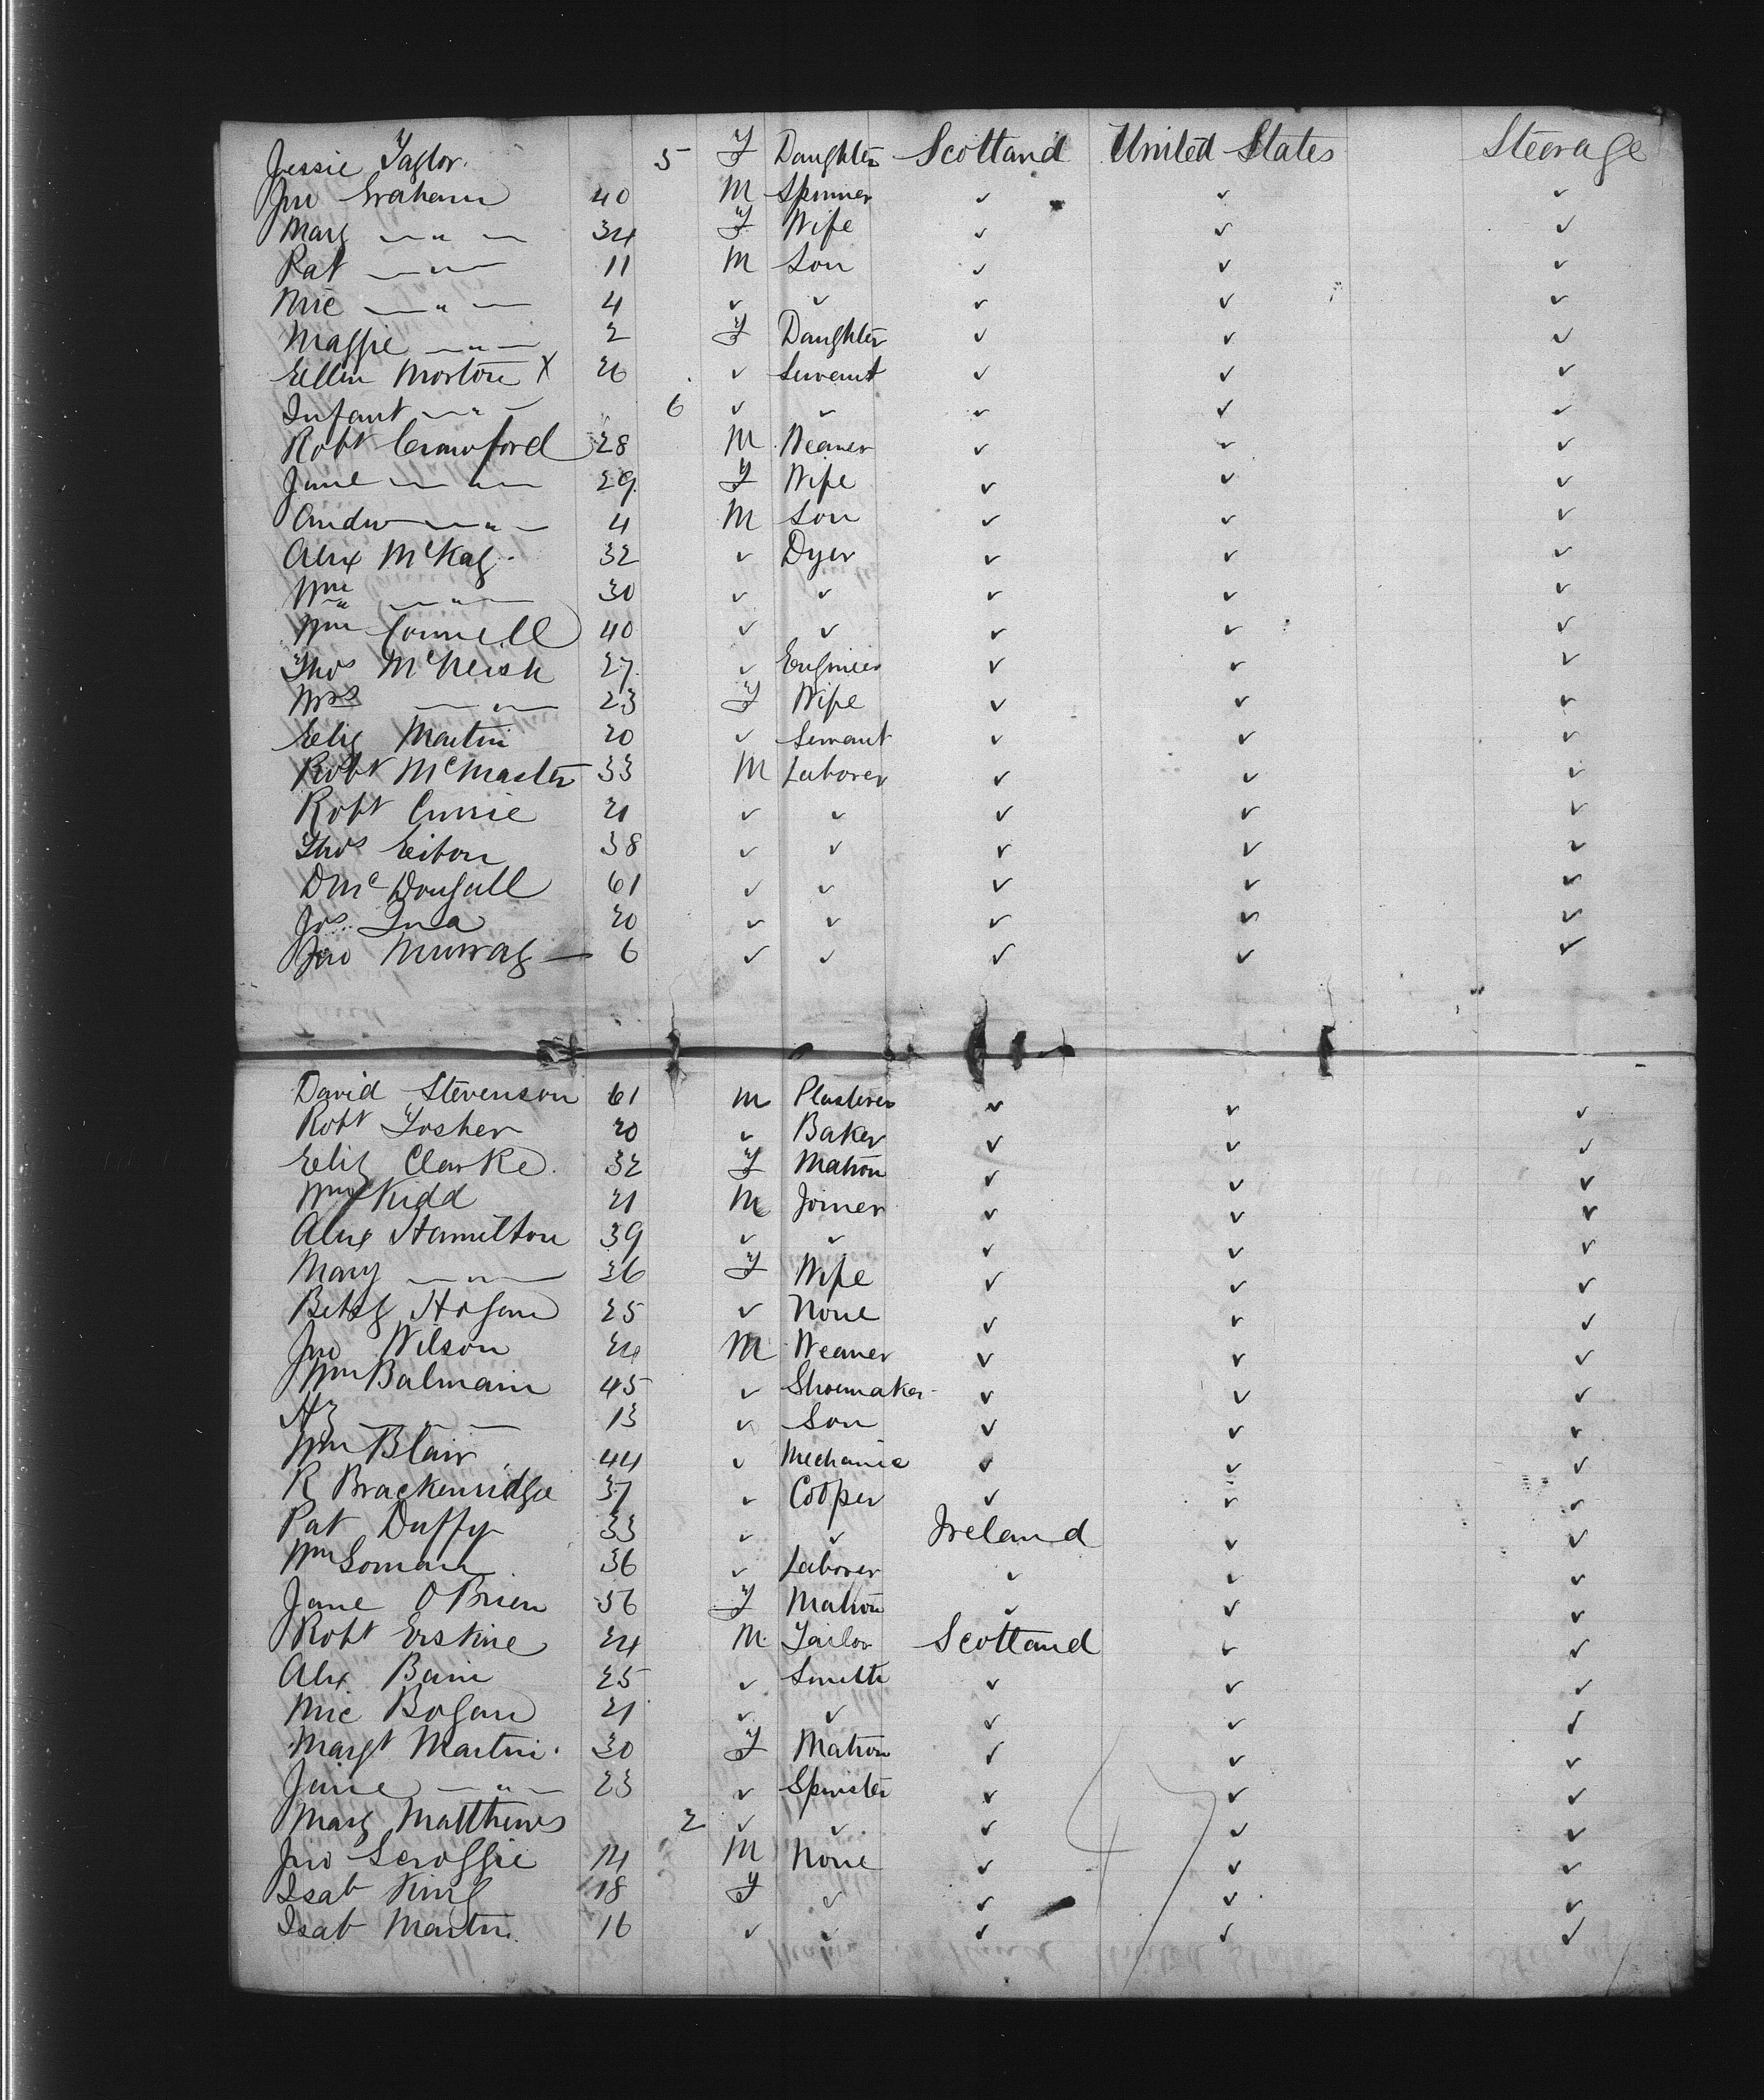 Jessie Taylor. 5 F Daughter Scotland United States Steerage
Jno Graham 40 M Spinner ✓ ✓ ✓
Mary — " — 34 F Wife ✓ ✓ ✓
Pat — " — 11 M Son ✓ ✓ ✓
Mic — " — 4 ✓ ✓ ✓ ✓ ✓
Maggie — " — 2 F Daughter ✓ ✓ ✓
Ellen Morton X 26 ✓ Servant ✓ ✓ ✓
Infant — " — 6 ✓ ✓ ✓ ✓ ✓
Robt Crawford 28 M Weaver ✓ ✓ ✓
Jane — " — 29 F Wife ✓ ✓ ✓
Andw — " — 4 M Son ✓ ✓ ✓
Alex McKay. 32 ✓ Dyer ✓ ✓ ✓
Wm — " — 30 ✓ ✓ ✓ ✓ ✓
Wm Connell 40 ✓ ✓ ✓ ✓ ✓
Thos McNeish 27 ✓ Engineer ✓ ✓ ✓
Mrs — " — 23 F Wife ✓ ✓ ✓
Eliz Martin 20 ✓ Servant ✓ ✓ ✓
Robt McMaster 33 M Laborer ✓ ✓ ✓
Robt Currie 21 ✓ ✓ ✓ ✓ ✓
Thos Eiton 38 ✓ ✓ ✓ ✓ ✓
D McDougall 61 ✓ ✓ ✓ ✓ ✓
Jos 20 ✓ ✓ ✓ ✓ ✓
Jno Murray — 6 ✓ ✓ ✓ ✓ ✓
David Stevenson 61 M Plasterer ✓ ✓ ✓
Robt Fosher 20 ✓ Baker ✓ ✓ ✓
Eliz Clarke. 32 F Matron ✓ ✓ ✓
Wm Kidd 21 M Joiner ✓ ✓ ✓
Alex Hamilton 39 ✓ ✓ ✓ ✓ ✓
Mary — " — 36 F Wife ✓ ✓ ✓
Betsy Hogan 25 ✓ None ✓ ✓ ✓
Jno Wilson 24 M Weaver ✓ ✓ ✓
Wm Balmain 45 ✓ Shoemaker ✓ ✓ ✓
Hy — " — 13 ✓ Son ✓ ✓ ✓
Wm Blair 44 ✓ Mechanic ✓ ✓ ✓
R Brackenridge 37 ✓ Cooper ✓ ✓ ✓
Pat Duffy 33 ✓ ✓ Ireland ✓ ✓
Wm Loman 36 ✓ Laborer ✓ ✓ ✓
Jane O'Brien 36 F Matron ✓ ✓ ✓
Robt Erskine 24 M Tailor Scotland ✓ ✓
Alex. Bain 25 ✓ Smith ✓ ✓ ✓
Mic Bogan 21 ✓ ✓ ✓ ✓ ✓
Margt Martin. 30 F Matron ✓ ✓ ✓
Jane — " — 23 ✓ Spinster ✓ ✓ ✓
Mary Matthews 2 ✓ ✓ ✓ ✓ ✓
Jno Scroggie 14 M None ✓ ✓ ✓
Isab King 18 F ✓ ✓ ✓ ✓
Isab Martin. 16 ✓ ✓ ✓ ✓ ✓